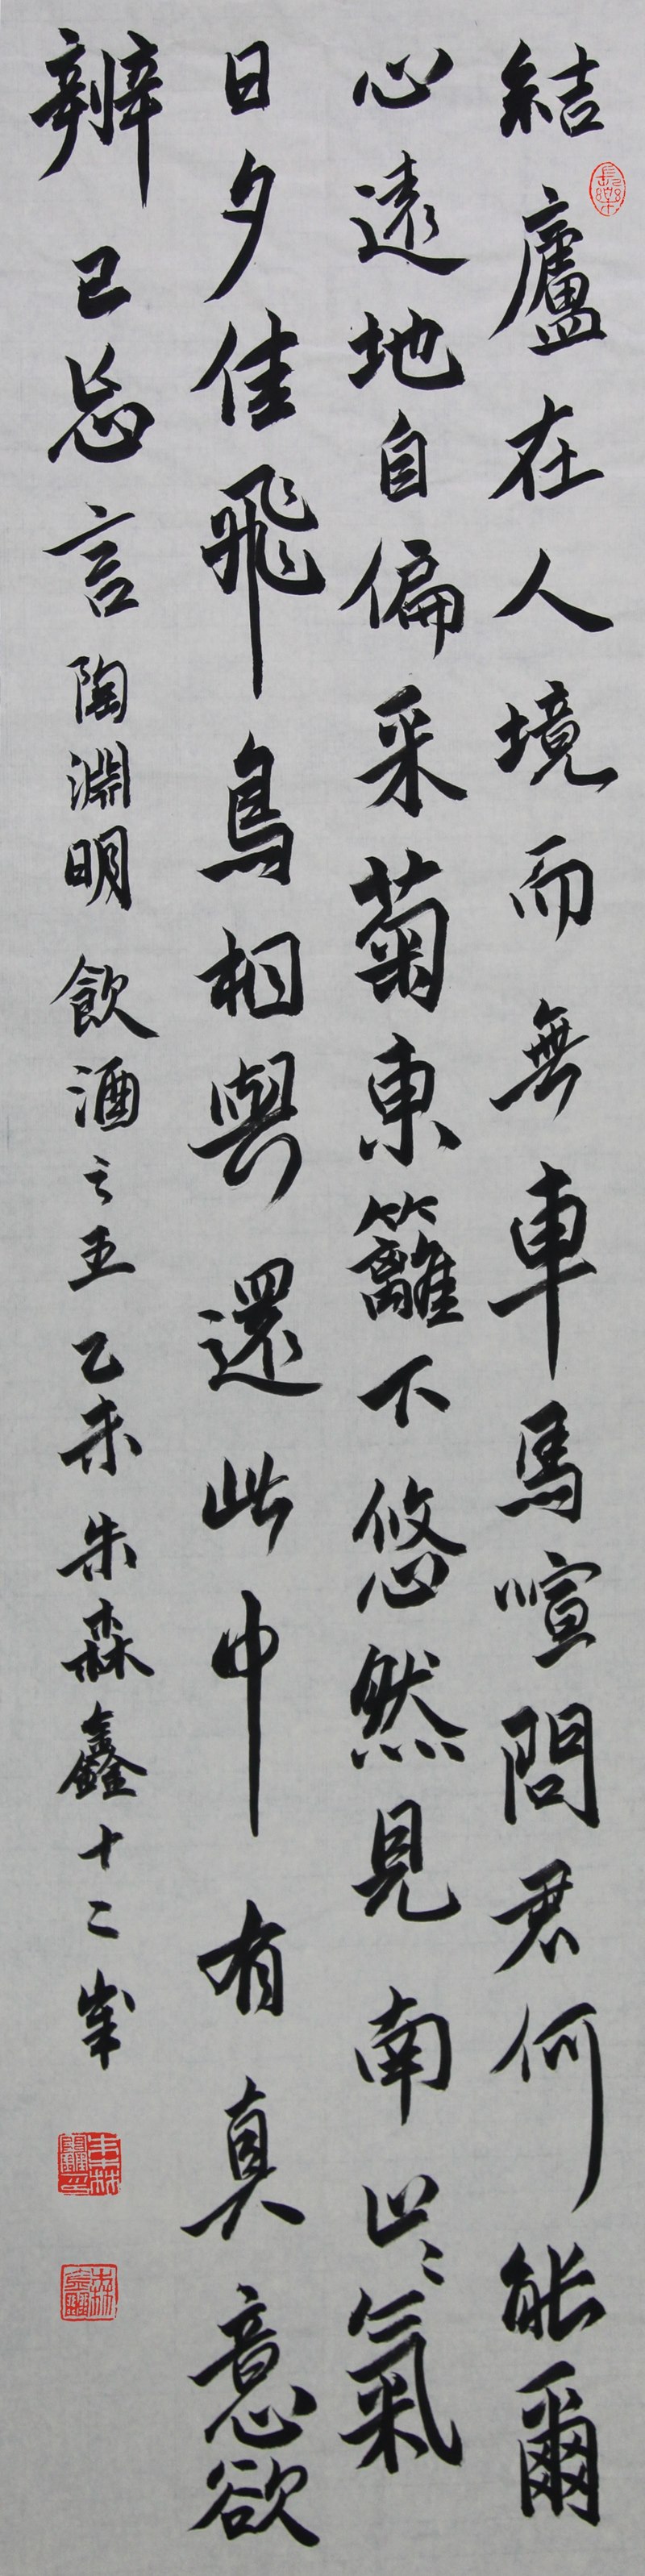 結廬在人境而無車馬喧問君何能爾
心遠地自偏采菊東籬下悠然見南山〻氣
日夕佳飛鳥相與還此中有真意欲
辨已忘言陶淵明飲酒之五乙未朱森鑫十二峯
長樂